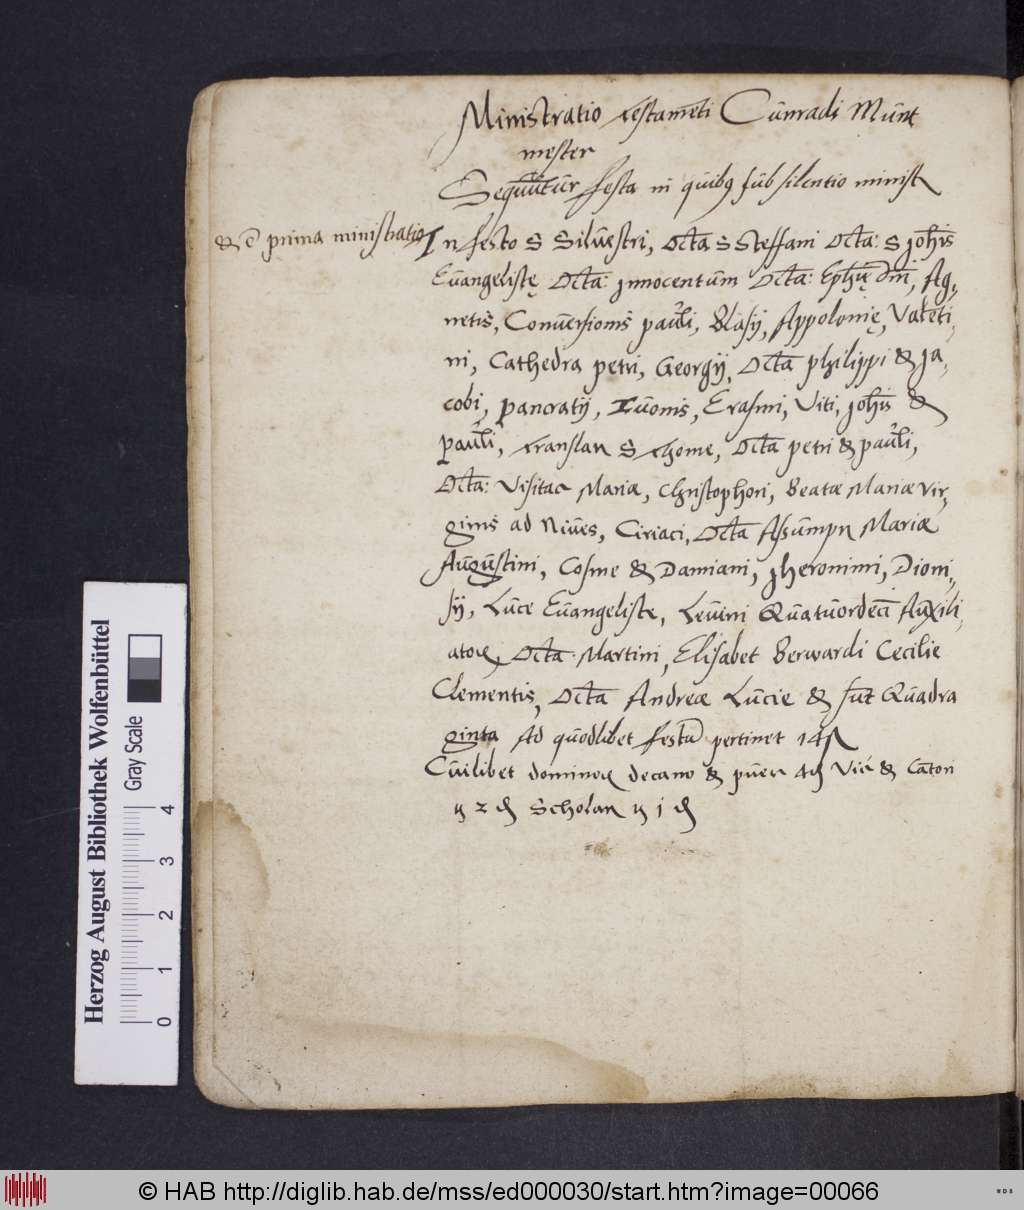 Ministratio testame͞ti Cu͞nradi Mu͞nt
mester
Sequu͞ntur festa in quibꝫ sub silentio minist
& e͞ prima ministratio
In festo S Silvestri, Octa͞ S Steffani Octa͞: S joh͞is
Evangelistę Octa͞: jnnocentum Octa͞: Eph͞ię dn͞i, Ag,
netis, Conversionis pau͞li, Blasij, Appolonię, Vale͞ti,
ni, Cathedra petri, Georgij, Octa͞ philippi & ja,
cobi, pancratij, Ivonis, Erasmi, Viti, joh͞is &
pau͞li, translan S thome, Octa͞ petri & pau͞li,
Octa͞: Visitac Mariæ, Christophori, Beatæ Mariæ vir,
ginis ad Nives, Ciriaci, Octa͞ Assumpn Mariæ
Augustini, Cosme & Damiani, jheronimi, Dioni,
sij, Luce Evangeliste, Levini Quatuordeci͞ Auxili,
atoꝝ, Octa͞ Martini, Elisabet Berwardi Cecilie
Clementis, Octa͞ Andreæ Lucie & su͞t Quadra
ginta Ad quodlibet festu͞ pertinet 14
Cuilibet dominoꝝ decano & puer 4 Vic & Ca͞tori
2 Scholar j
Herzog August Bibliothek Wolfenbüttel
Gray Scale
0 1 2 3 4
© HAB http://diglib.hab.de/mss/ed000030/start.htm?image=00066
WDB